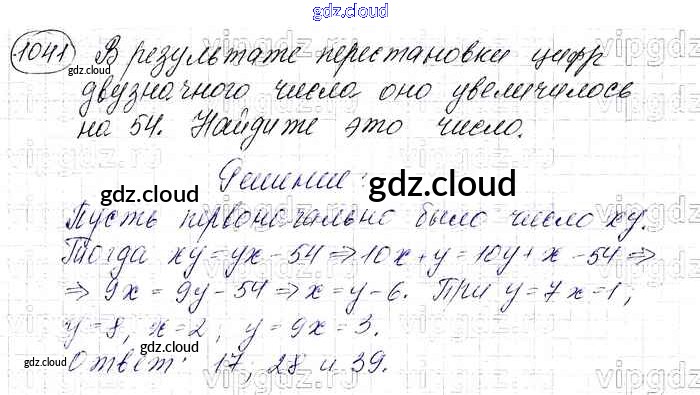 gdz.cloud
1041 В результате перестановки цифр
gdz.cloud
двузначного числа оно увеличилось
на 54. Найдите это число.
Решение:
gdz.cloud gdz.cloud
Пусть первоначально было число xy.
Тогда xy = yx - 54 ⇒ 10x + y = 10y + x - 54 ⇒
⇒ 9x = 9y - 54 ⇒ x = y - 6. При y = 7 x = 1;
y = 8, x = 2; y = 9 x = 3.
gdz.cloud Ответ: 17, 28 и 39.
gdz.cloud gdz.cloud